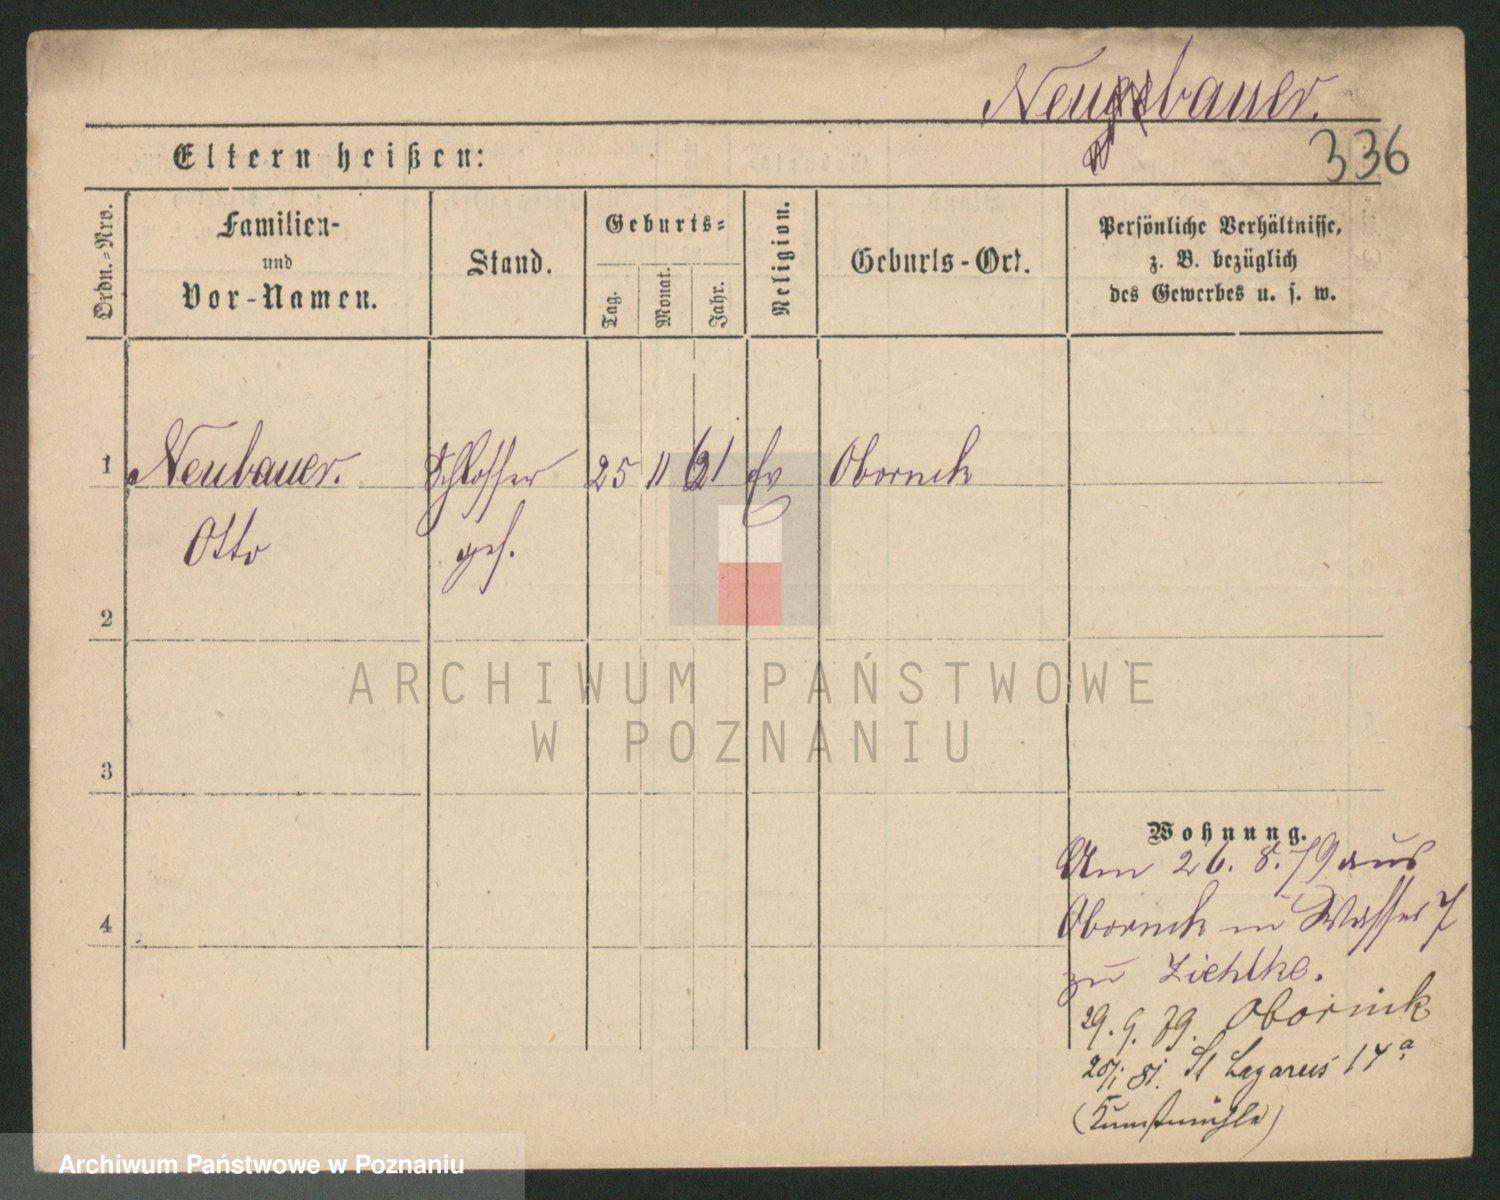 Neubauer.
336
Eltern heißen:
Ordn.-Nro.
Familien-
und
Vor-Namen.
Stand.
Geburts-
Tag.
Monat.
Jahr.
Religion.
Geburts-Ort.
Persönliche Verhältnisse,
z. B. bezüglich
des Gewerbes u. s. w.
1 Neubauer. Schlosser 25 11 61 Ev Obornik
Otto ges.
2
3
4
ARCHIWUM PAŃSTWOWE
W POZNANIU
Wohnung.
Am 26. 8. 79 aus
Obornik in Wasser 7
zu Ziehlke.
29. 9. 79. Obornik
20/1 81. St Lazarus 14a
(Kunstmühle)
Archiwum Państwowe w Poznaniu